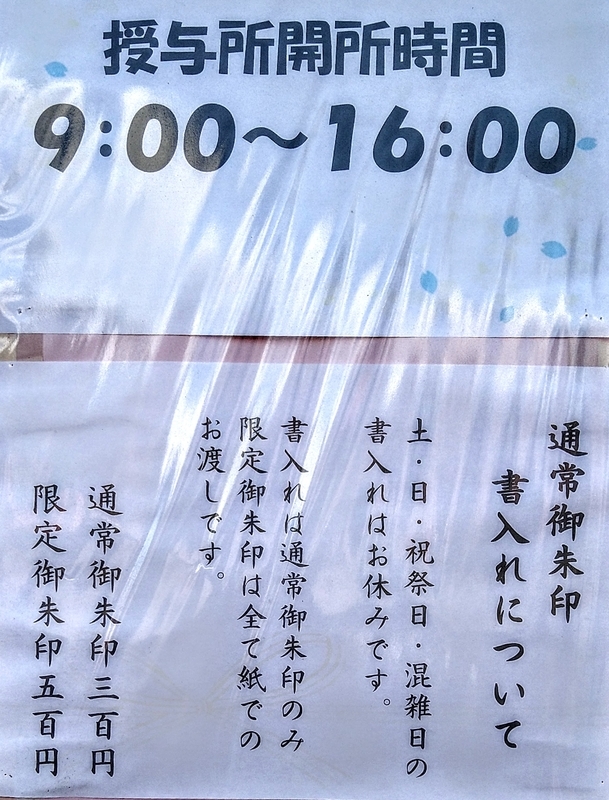 授与所開所時間
9:00～16:00
通常御朱印
書入れについて
土・日・祝祭日・混雑日の
書入れはお休みです。
書入れは通常御朱印のみ
限定御朱印は全て紙での
お渡しです。
通常御朱印三百円
限定御朱印五百円